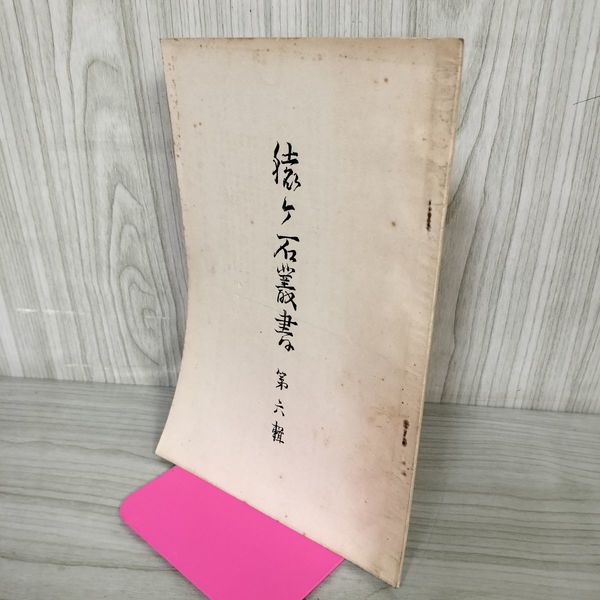 猿ヶ石叢書
第六輯